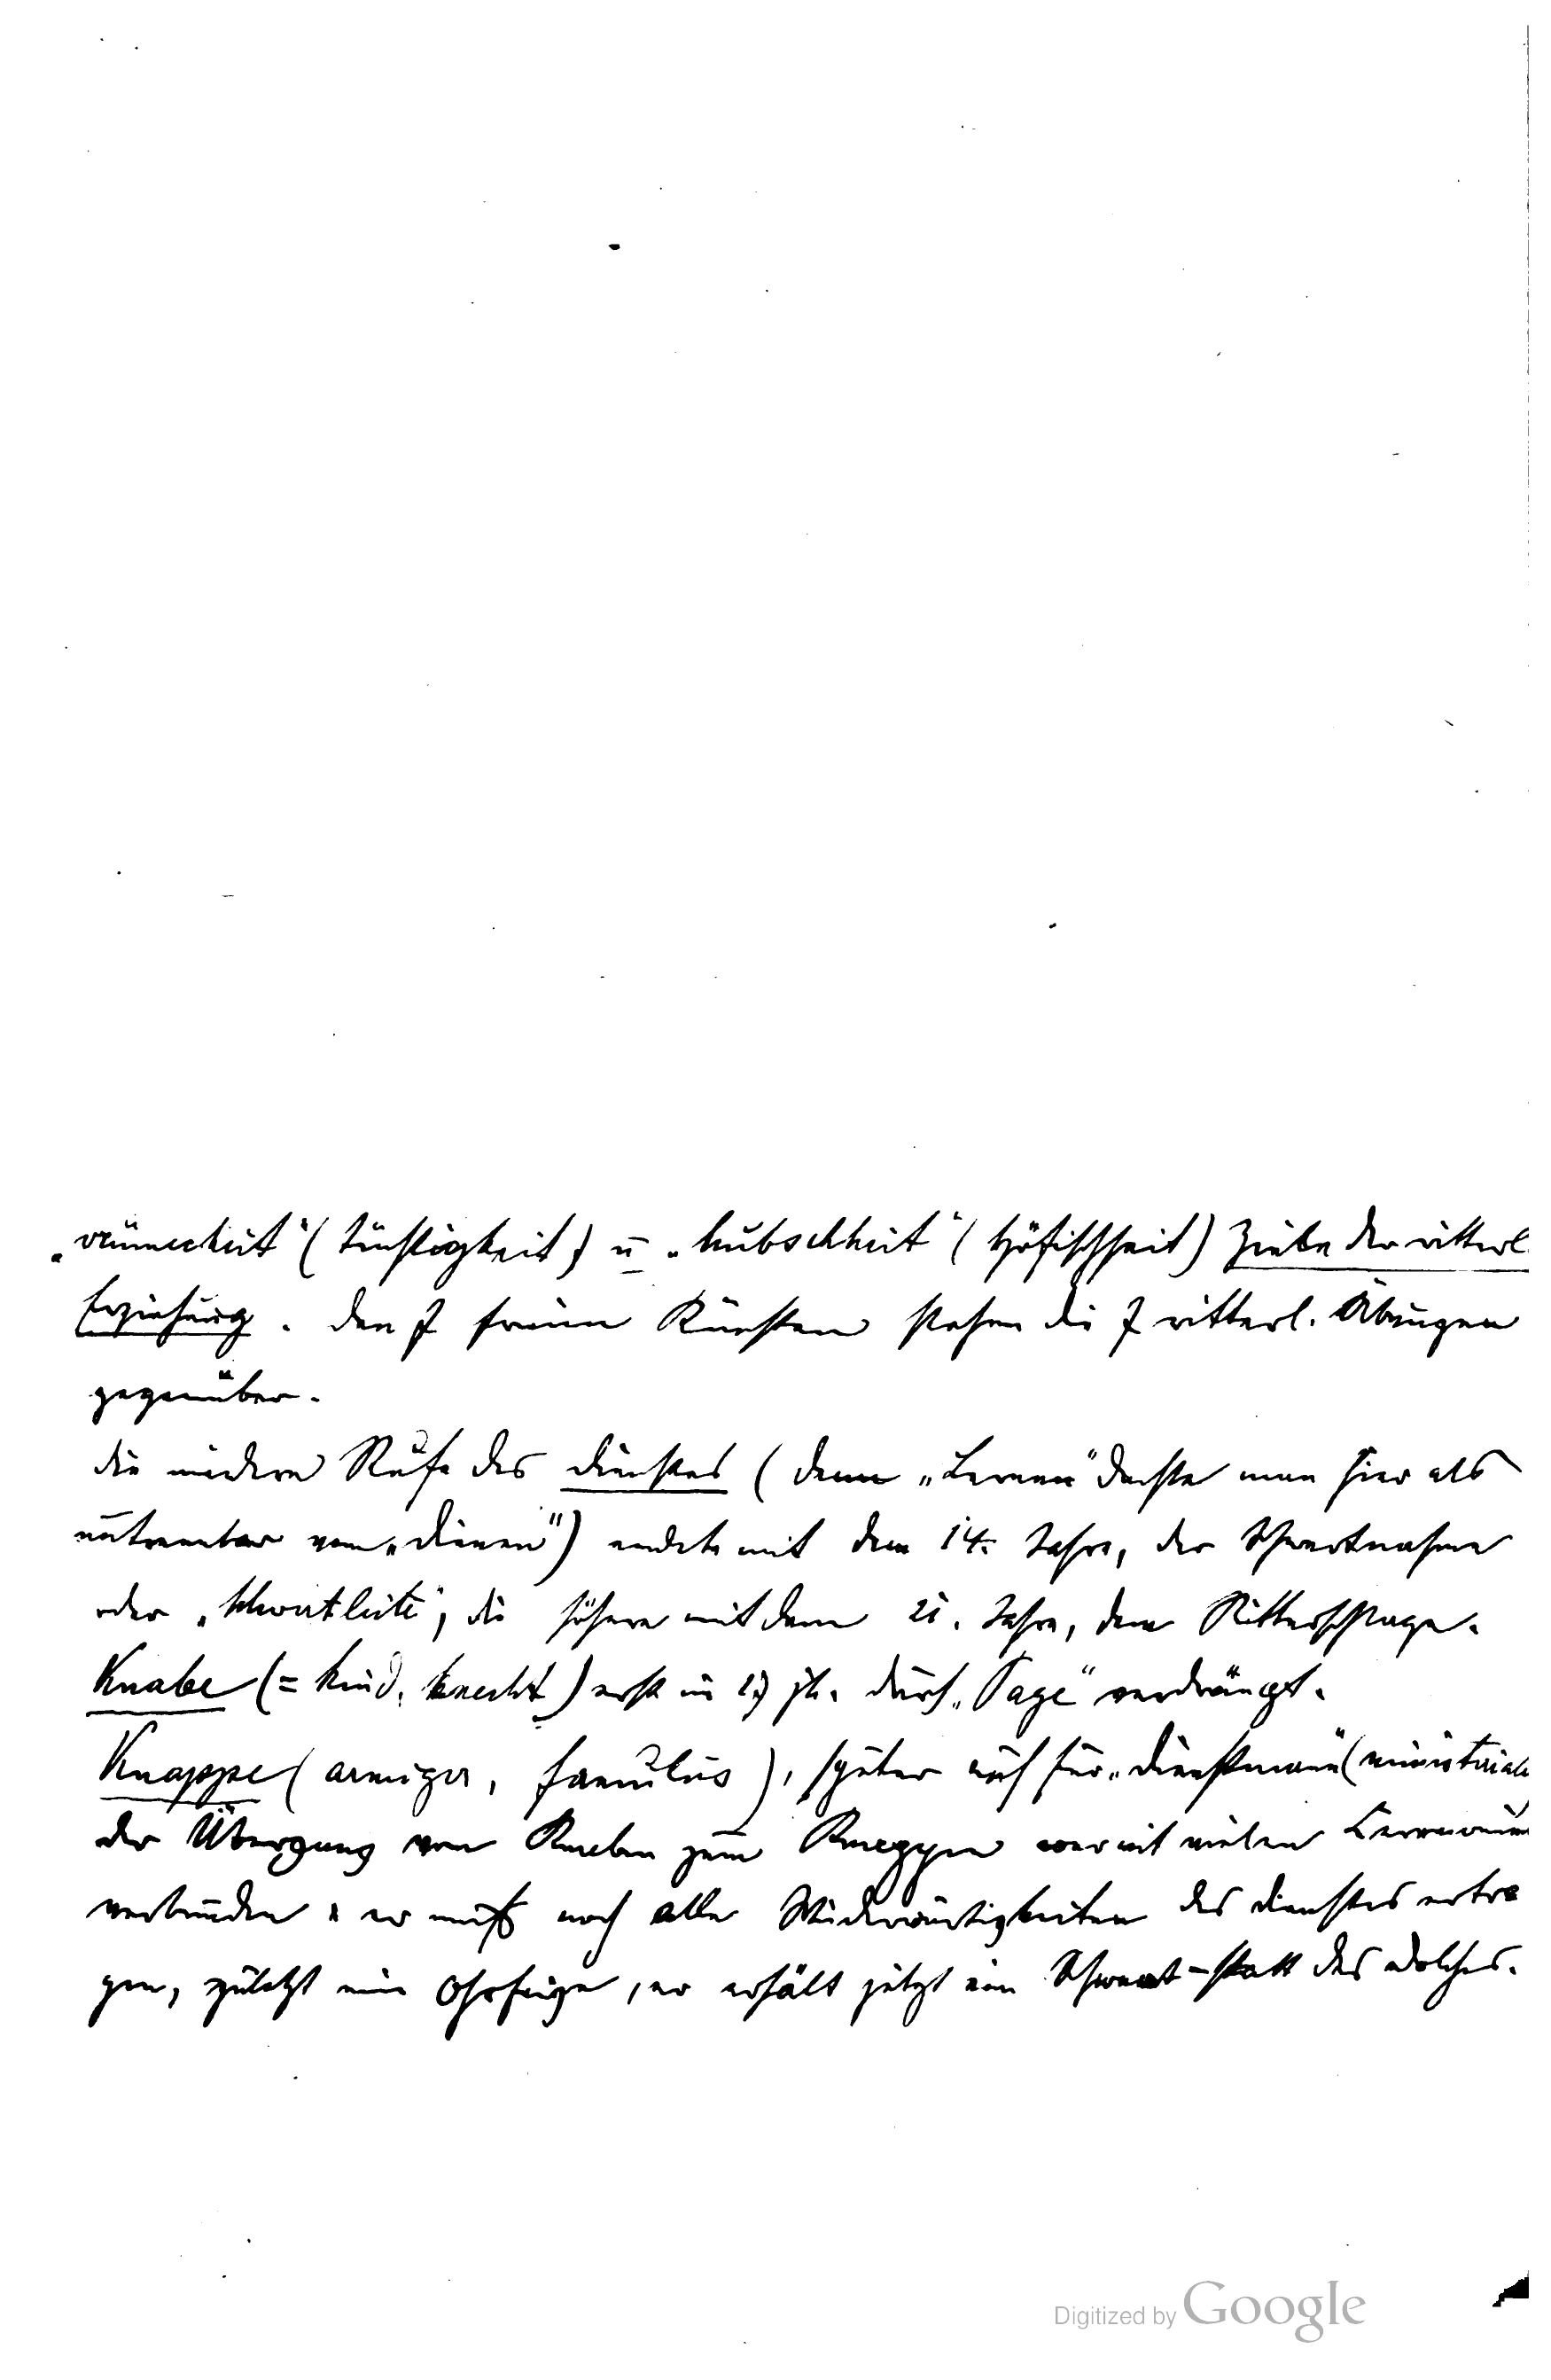 „vrümecheit“ (Tüchtigkeit) u. „hübschheit“ (Höfischheit) Ziele der ritterl.
Erziehung. Den 7 freien Künsten stehen die 7 ritterl. Übungen
gegenüber.
Die niedere Stufe des Dienstes (denn „Lernen“ dachte man hier als
untrennbar vom „Dienen“) endete mit dem 14. Jahre, der Schwertnahme
oder „schwertleite“, die höhere mit dem 21. Jahre, dem Ritterschlage.
Knabe (= kind, knecht) erst im 17 Jh. durch „Page“ verdrängt.
Knappe (armiger, famulus), später auch für „Dienstmann“ (ministeriale
Der Übergang vom Knaben zum Knappen war mit vielen Ceremonien
verbunden: er muß noch alle Widerwärtigkeiten des Dienstes ertra
gen, zuletzt eine Ohrfeige, er erhält jetzt ein Schwert statt des Dolches.
Digitized by Google